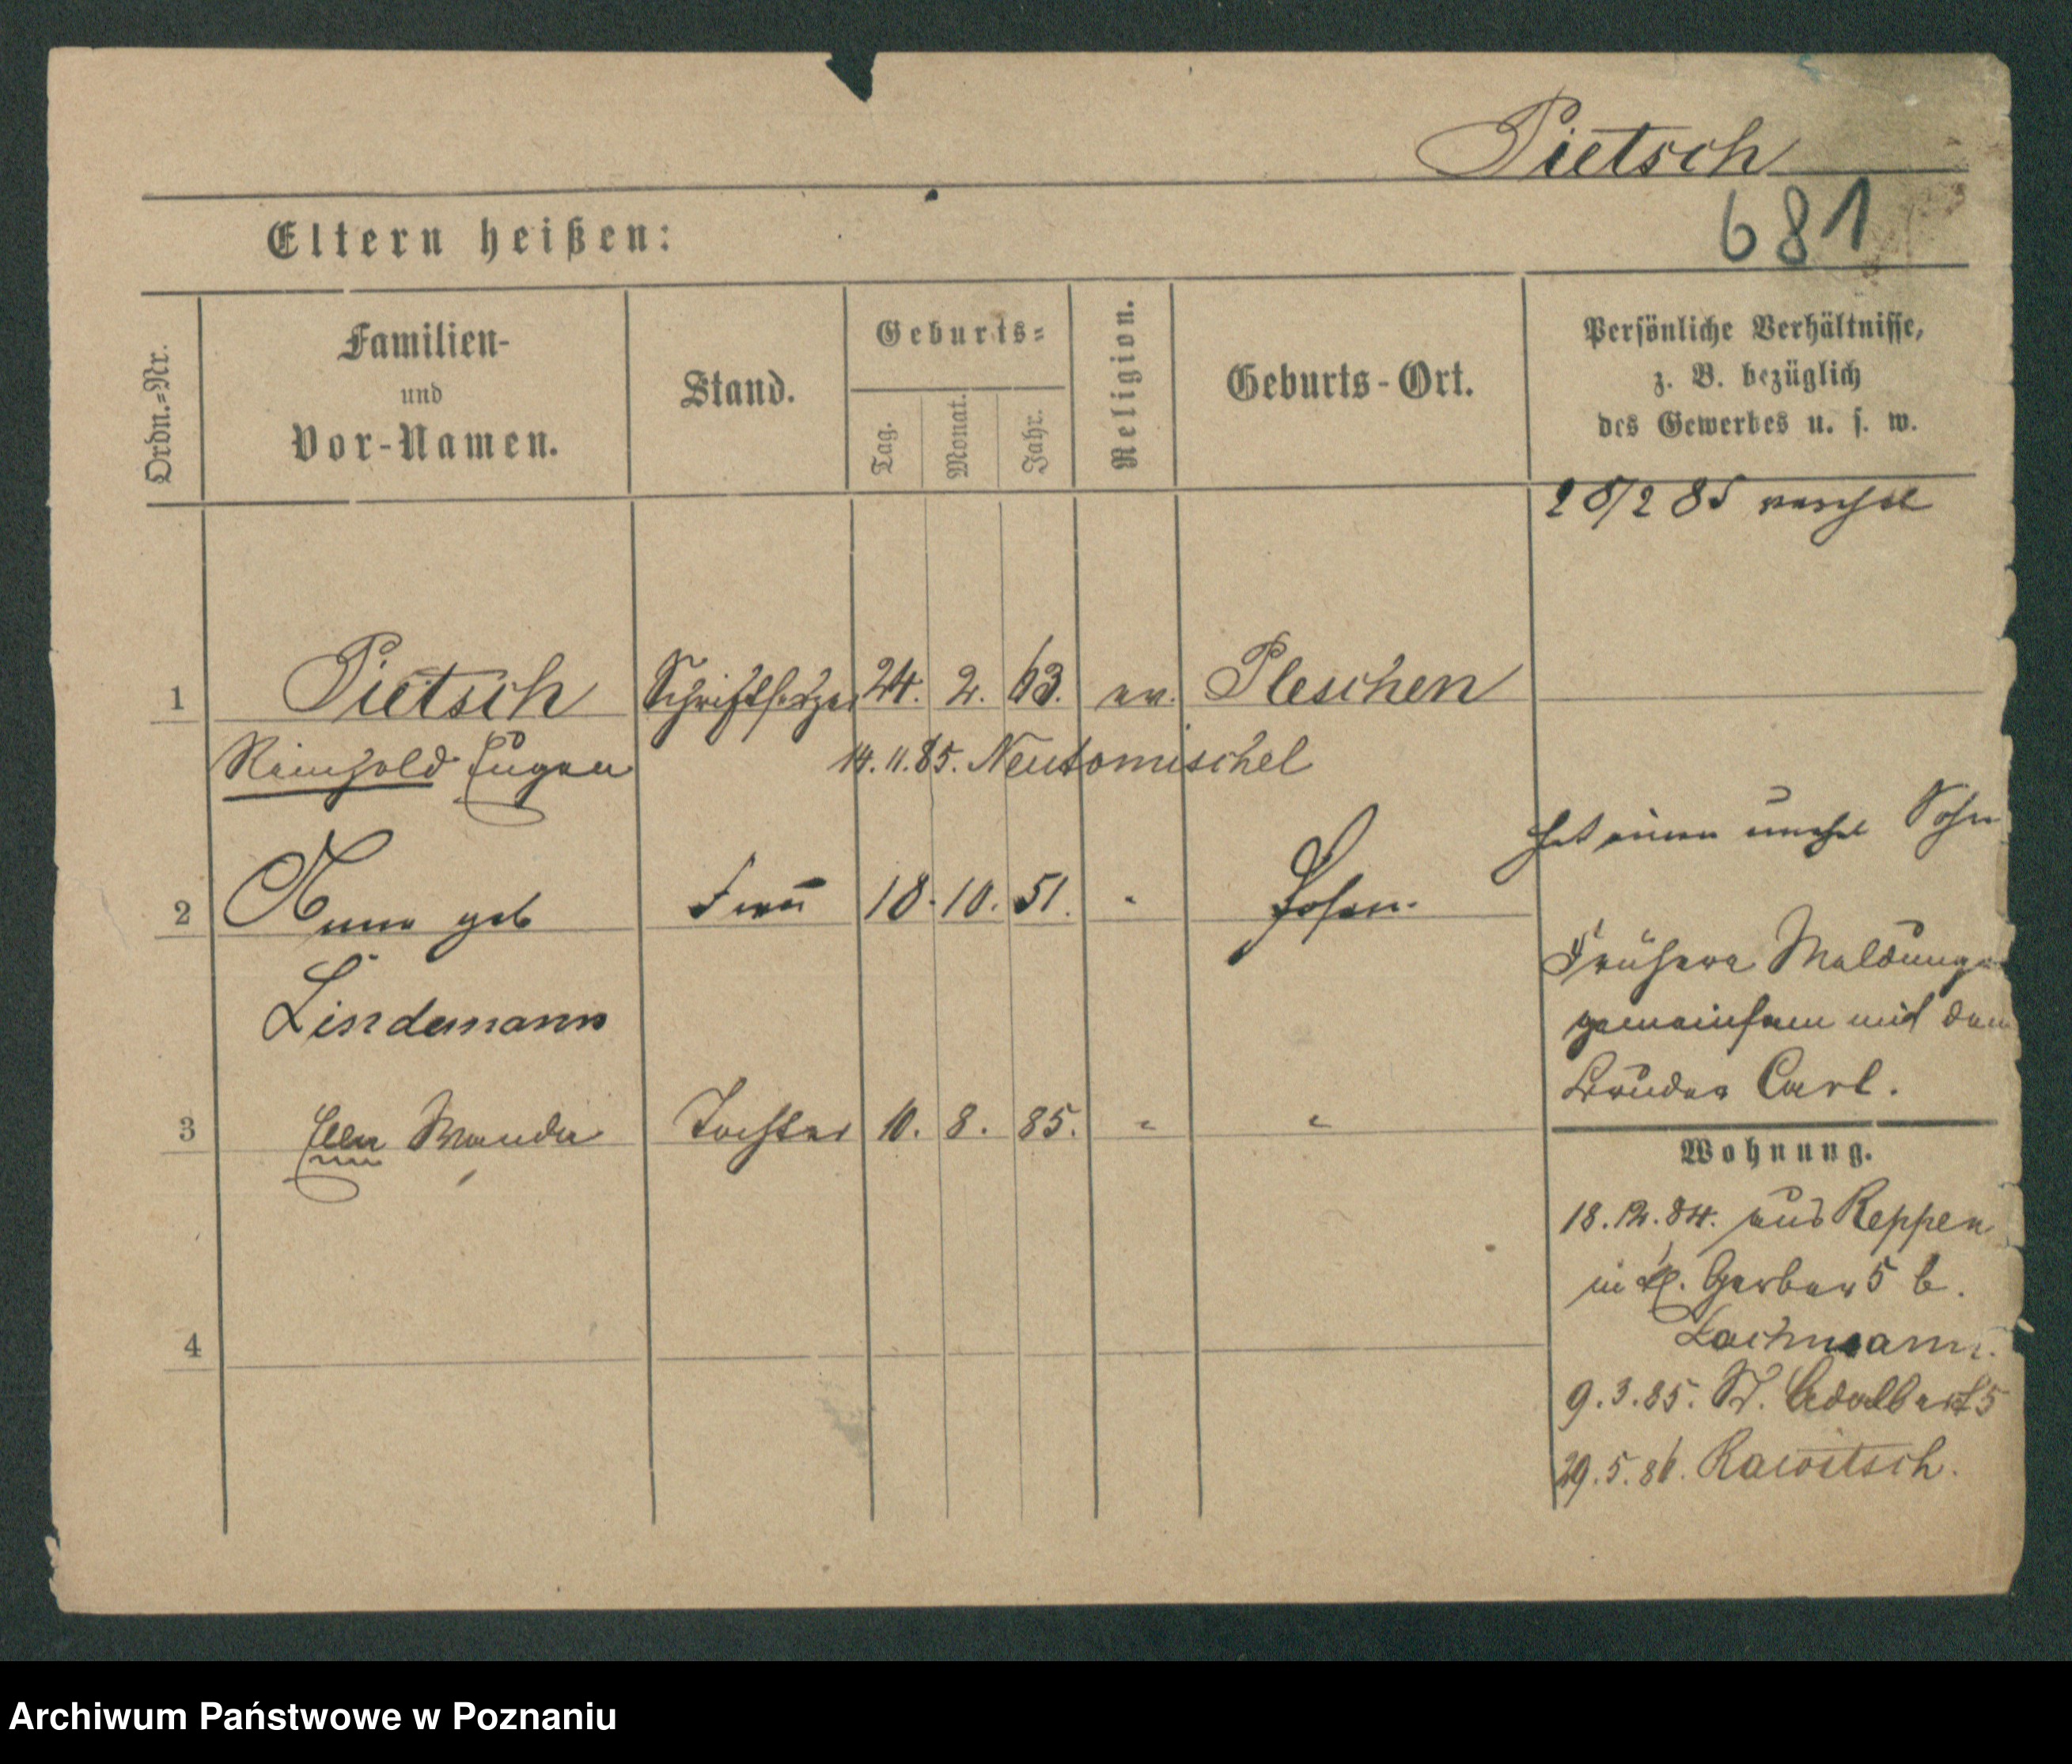 Pietsch
681
Eltern heißen:
Ordn.=Nr.
Familien-
und
Vor-Namen.
Stand.
Geburts=
Tag.
Monat.
Jahr.
Religion.
Geburts-Ort.
Persönliche Verhältnisse,
z. B. bezüglich
des Gewerbes u. s. w.
28/2 85 verehel
1 Pietsch Schriftsetzer 24. 2. 63. ev. Pleschen
Reinhold Eugen 14.11.85. Neutomischel
hat einen unehel Sohn
2 Anna geb Frau 18. 10. 51. " Posen.
Lindemann
Frühere Meldungen
gemeinsam mit dem
Bruder Carl.
3 Ella Wanda Tochter 10. 8. 85. " "
4
Wohnung.
18.12.84. aus Reppen
in kl. Gerber 5 b.
Lachmann.
9.3.85. St. Adalbert 5
29.5.86. Rawitsch.
Archiwum Państwowe w Poznaniu